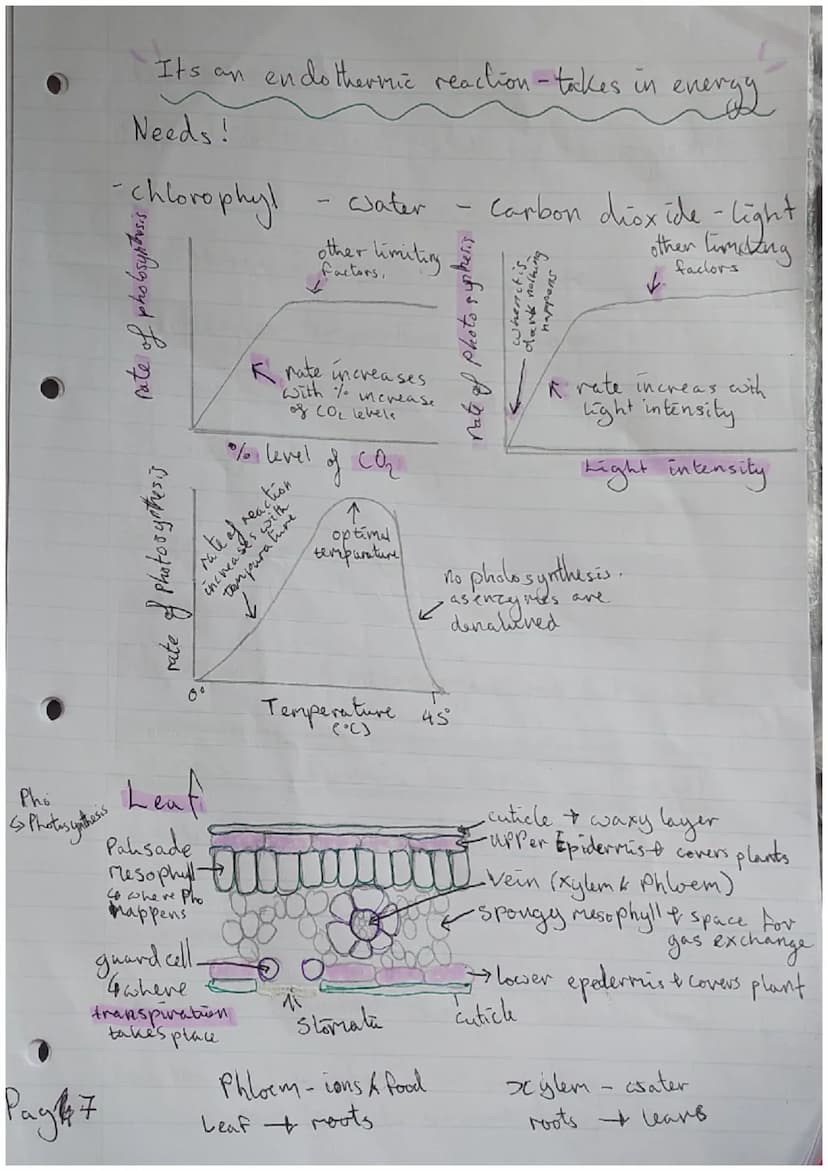 Its an endothermic reaction - takes in energy
Needs!
- chlorophyl - water - carbon dioxide - light
rate of photosynthesis
other limiting
factors.
rate increases
with % increase
of CO2 levels
% level of CO2
rate of photosynthesis
when it is
dark nothing
happens
other limiting
factors
rate increas with
light intensity
Light intensity
rate of photosynthesis
rate of reaction
increases with
tempurature
optimal
tempurature
no photosynthesis.
as enzymes are
denatured
0°
Temperature
(°C)
45°
Pho
↳ Photosynthesis
Leaf
Palisade
mesophyll
↳ where Pho
happens
guard cell
↳ where
transpiration
takes place
cuticle → waxy layer
upper Epidermis → covers plants
vein (xylem & Phloem)
spongy mesophyll → space for
gas exchange
lower epedermis → covers plant
cuticle
Stomata
Phloem - ions & food
Leaf → roots
xylem - water
roots → leavs
Page 7